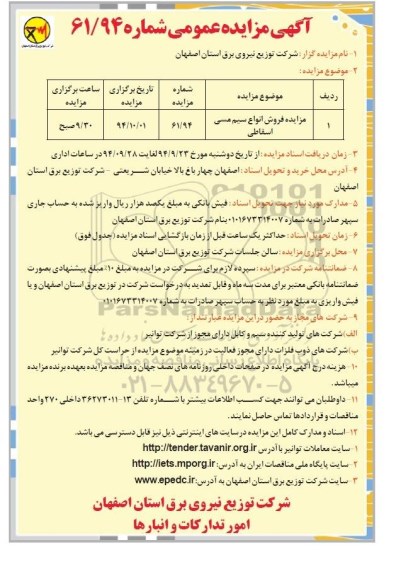 آگهی مزایده عمومی شماره ۶۱/۹۴
۱- نام مزایده گزار: شرکت توزیع نیروی برق استان اصفهان
۲- موضوع مزایده:
ردیف موضوع مزایده شماره مزایده تاریخ برگزاری مزایده ساعت برگزاری مزایده
۱ مزایده فروش انواع سیم مسی اسقاطی ۶۱/۹۴ ۹۴/۱۰/۰۱ ۹/۳۰ صبح
۳- زمان دریافت اسناد مزایده: از تاریخ دوشنبه مورخ ۹۴/۹/۲۳ لغایت ۹۴/۰۹/۲۸ در ساعات اداری
۴- آدرس محل خرید و تحویل اسناد: اصفهان چهار باغ بالا خیابان شریعتی - شرکت توزیع برق استان
اصفهان
۵- مدارک مورد نیاز جهت تحویل اسناد: فیش بانکی به مبلغ یکصد هزار ریال واریز شده به حساب جاری
سپهر صادرات به شماره ۰۱۰۱۶۷۳۳۱۴۰۰۷ بنام شرکت توزیع برق استان اصفهان
۶- زمان تحویل اسناد: حداکثر یک ساعت قبل از زمان بازگشایی اسناد مزایده (جدول فوق)
۷- محل برگزاری مزایده: سالن جلسات شرکت توزیع برق استان اصفهان
۸- ضمانتنامه شرکت در مزایده: سپرده لازم برای شرکت در مزایده به مبلغ ۱۰٪ مبلغ پیشنهادی بصورت
ضمانتنامه بانکی معتبر برای مدت سه ماه و قابل تمدید به درخواست شرکت در توزیع برق استان اصفهان و یا
فیش واریزی به مبلغ مورد نظر به حساب سپهر صادرات به شماره ۰۱۰۱۶۷۳۳۱۴۰۰۷
۹- شرکت های مجاز به حضور در این مزایده عبارتند از:
الف) شرکت های تولید کننده سیم و کابل دارای مجوز از شرکت توانیر
ب) شرکت های ذوب فلزات دارای مجوز فعالیت در زمینه موضوع مزایده از حراست کل شرکت توانیر
۱۰- هزینه درج آگهی مزایده در صفحات داخلی روزنامه های نصف جهان و مناقصه مزایده بعهده برنده مزایده
میباشد.
۱۱- داوطلبان می توانند جهت کسب اطلاعات بیشتر با شماره تلفن ۱۳-۳۶۲۷۳۰۱۱ داخلی ۲۷۰ واحد
مناقصات و قراردادها تماس حاصل نمایند.
۱۲- اسناد و مدارک کامل این مزایده در سایت های اینترنتی ذیل نیز قابل دسترسی می باشد.
۱- سایت معاملات توانیر با آدرس http://tender.tavanir.org.ir
۲- سایت پایگاه ملی مناقصات ایران به آدرس: http://iets.mporg.ir
۳- سایت شرکت توزیع برق استان اصفهان به آدرس: www.epedc.ir
شرکت توزیع نیروی برق استان اصفهان
امور تدارکات و انبارها
ParsNamadData
۰۲۱-۸۸۳۴۹۶۷۰-۵